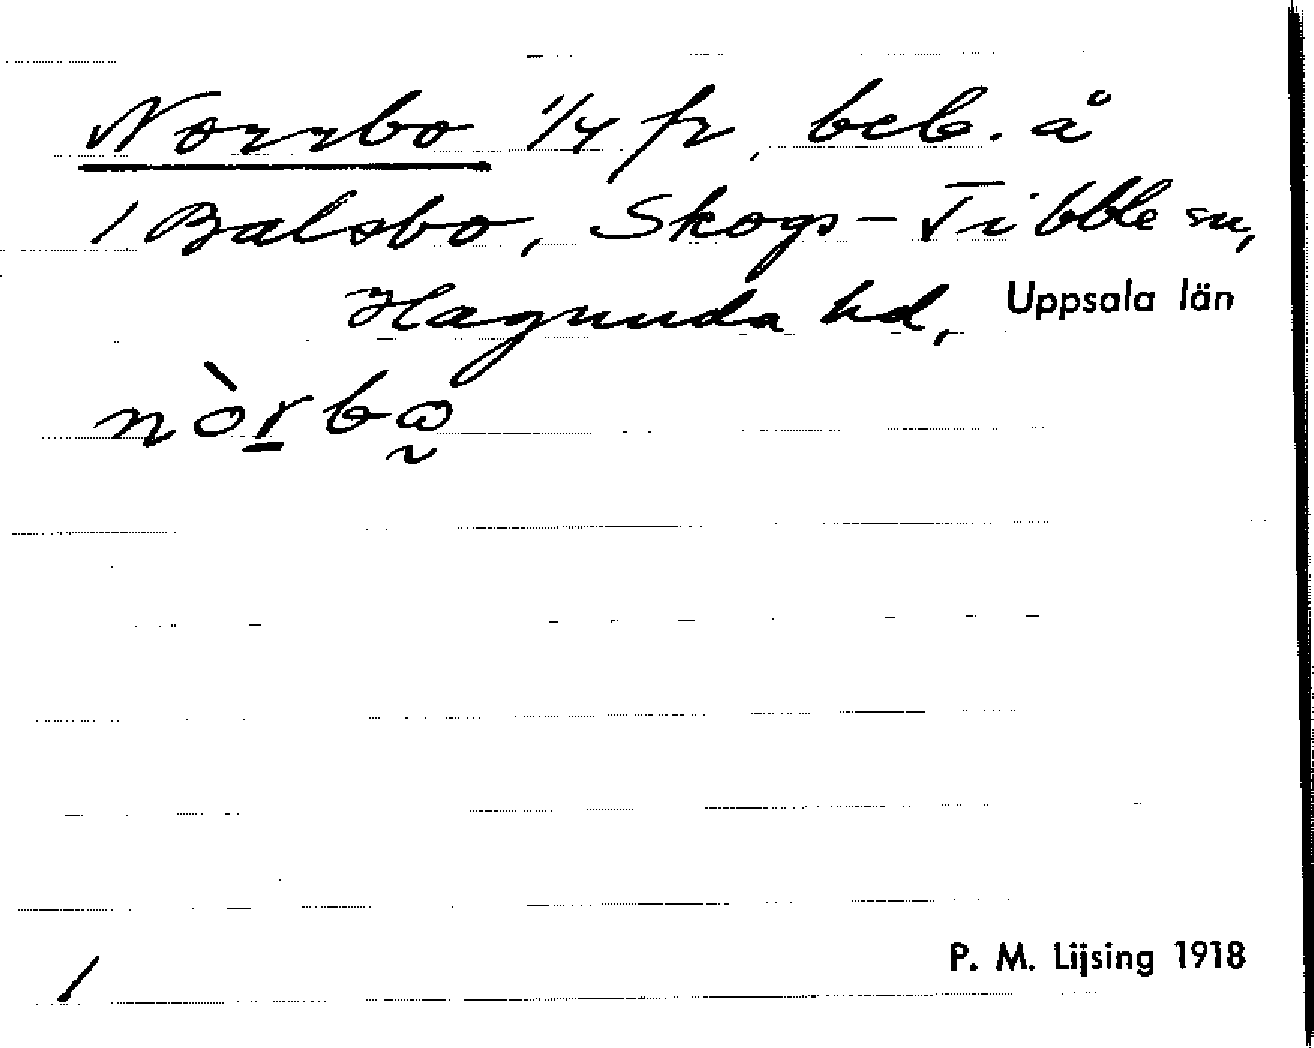 Norrbo 1/4 fr, beb. å
1 Balsbo, Skogs-Tibble sn,
Hagunda hd, Uppsala län
nòrbω
P. M. Lijsing 1918
/